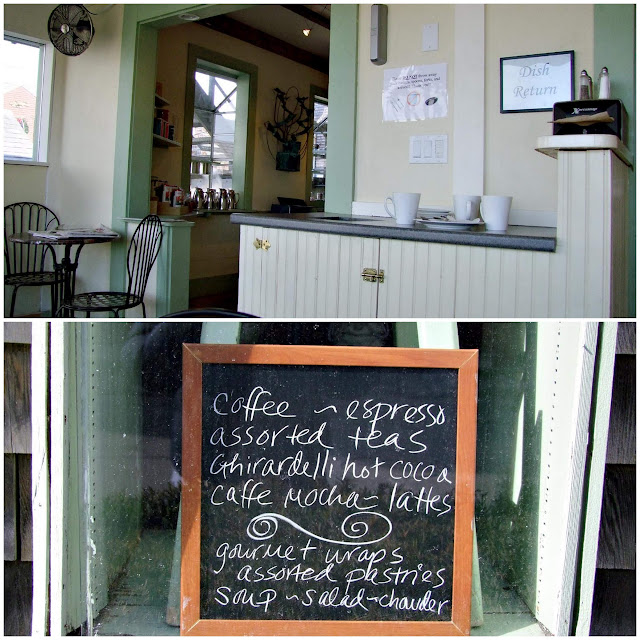 Dish
Return
coffee ~ espresso
assorted teas
Ghirardelli hot cocoa
caffe mocha ~ lattes
gourmet wraps
assorted pastries
soup ~ salad ~ chowder